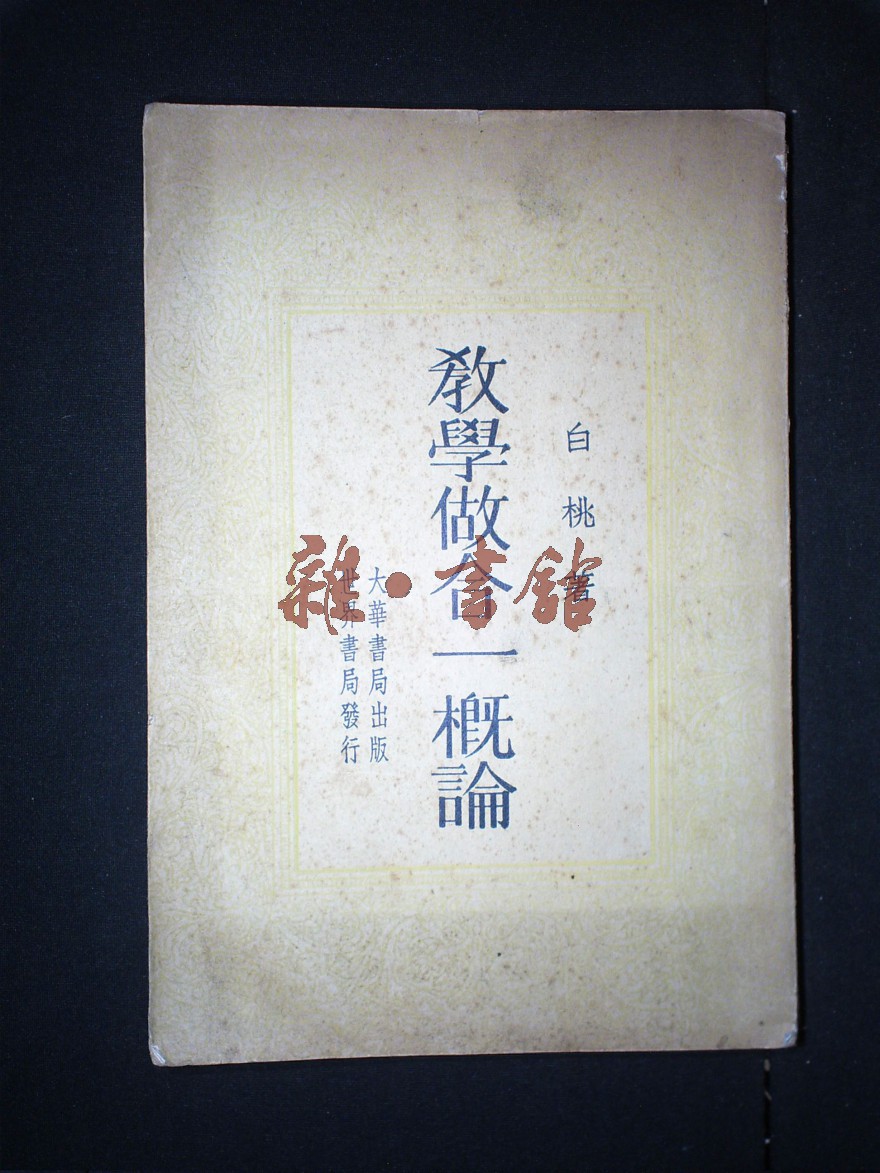 白桃著
教學做合一槪論
大華書局出版
世界書局發行
雜·書館